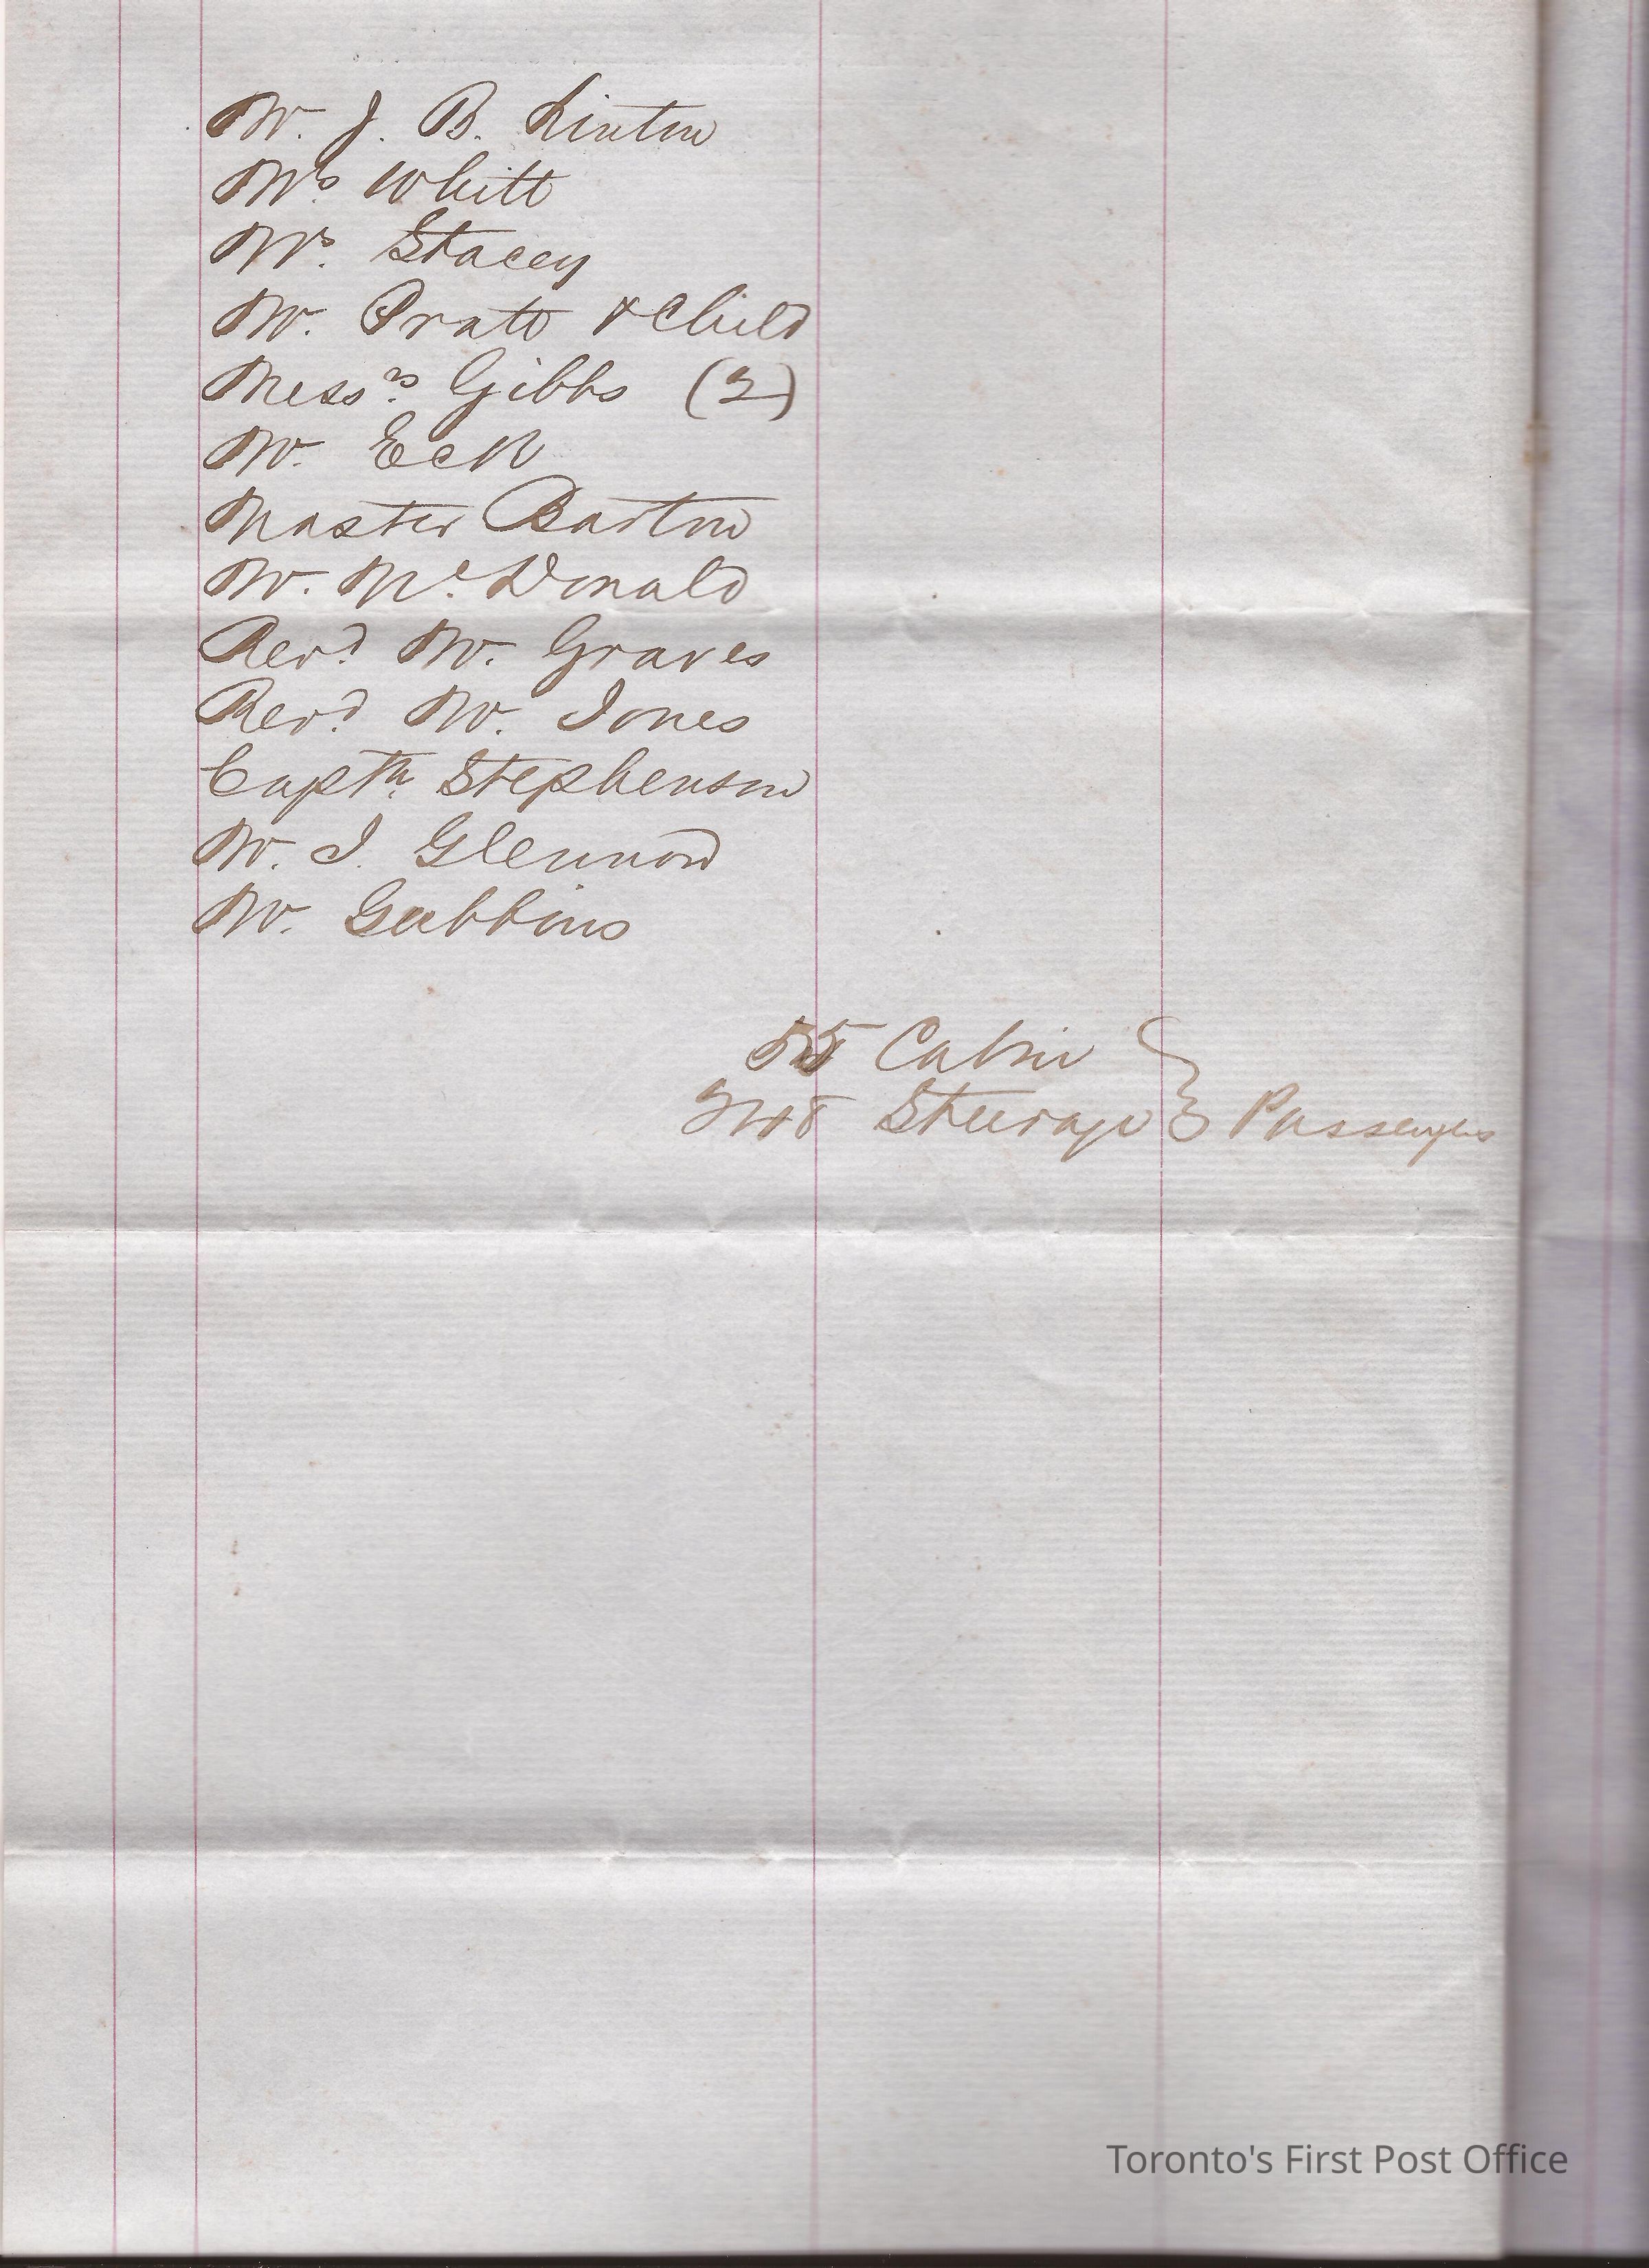 Mr. J. B. Linton
Mrs White
Mrs. Stacey
Mr. Pratt & Child
Messrs. Gibbs (2)
Mr. Eck
Master Barton
Mr. McDonald
Revd. Mr. Graves
Revd. Mr. Jones
Captn. Stephenson
Mr. J. Glennon
Mr. Gubbins
55 Cabin
Steerage } Passengers
Toronto's First Post Office